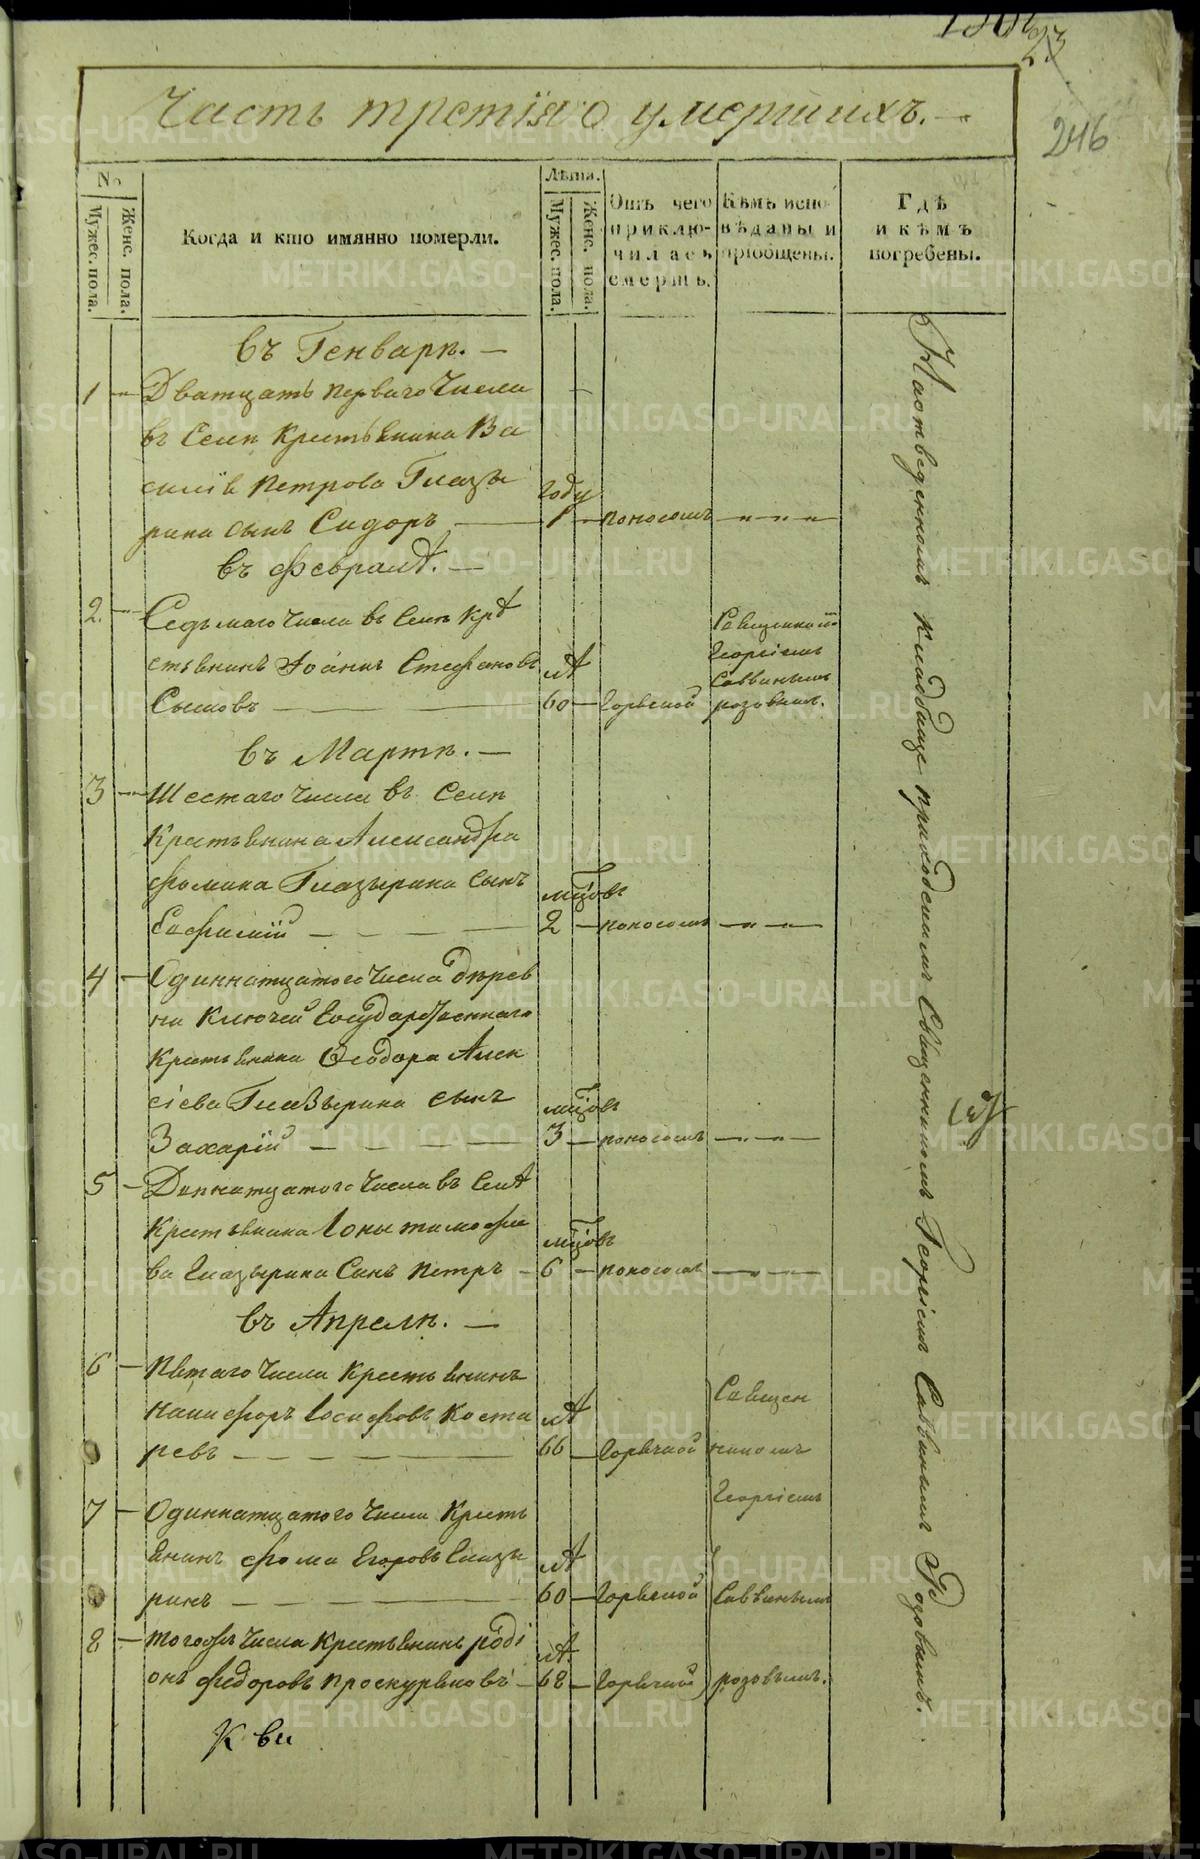 23
246
Часть третїя о умершихъ.
№
Мужес. пола.
Женс. пола.
Когда и кто имянно померли.
Лѣта.
Мужес. пола.
Женс. пола.
Отъ чего
приклю-
чилась
смерть.
Кѣмъ испо-
вѣданы и
пріобщены.
Гдѣ
и кѣмъ
погребены.
въ Генварѣ.
1 Дватцать перваго числа
въ Селѣ Крестьянина Ва
силїя Петрова Глазы
рина сынъ Сидоръ
году
1 поносомъ
въ Февралѣ.
2. Седьмаго числа въ Селѣ Кре
стьянинъ Іоаннъ Стефановъ
Сысковъ
лѣ
60 Горячкой
Священникомъ
Георгіемъ
Саввинымъ
розовымъ.
въ Мартѣ.
3 Шестаго числа въ Селѣ
Крестьянина Александра
Фомина Глазырина сынъ
Евфимїй
мцовъ
2 поносомъ
4 Одиннатцатого числа дерев
ни Ключей Государственнаго
Крестьянина Феодора Алек
сіева Глазырина сынъ
Захарїй
мцовъ
3 поносомъ
5 Двенатцатого числа въ Селѣ
Крестьянина Іоны тимофее
ва Глазырина Сынъ Петръ
мцовъ
6 поносомъ
въ Апрелѣ.
6 Пятаго числа Крестьянинъ
Никифоръ Іосифовъ Коста
ревъ
лѣ
66 Горячкой
Священ
никомъ
Георгіемъ
7 Одиннатцатого числа Кресть
янинъ Фома Егоровъ Глазы
ринъ
лѣ
60 Горячкой
Саввинымъ
8 тогожъ числа Крестьянинъ Роді
онъ Федоровъ Проскуряковъ
лѣ
68 Горячкой
розовымъ.
На отведенномъ кладбище приходскимъ Священникомъ Георгіемъ Саввинымъ Розовымъ.
METRIKI.GASO-URAL.RU